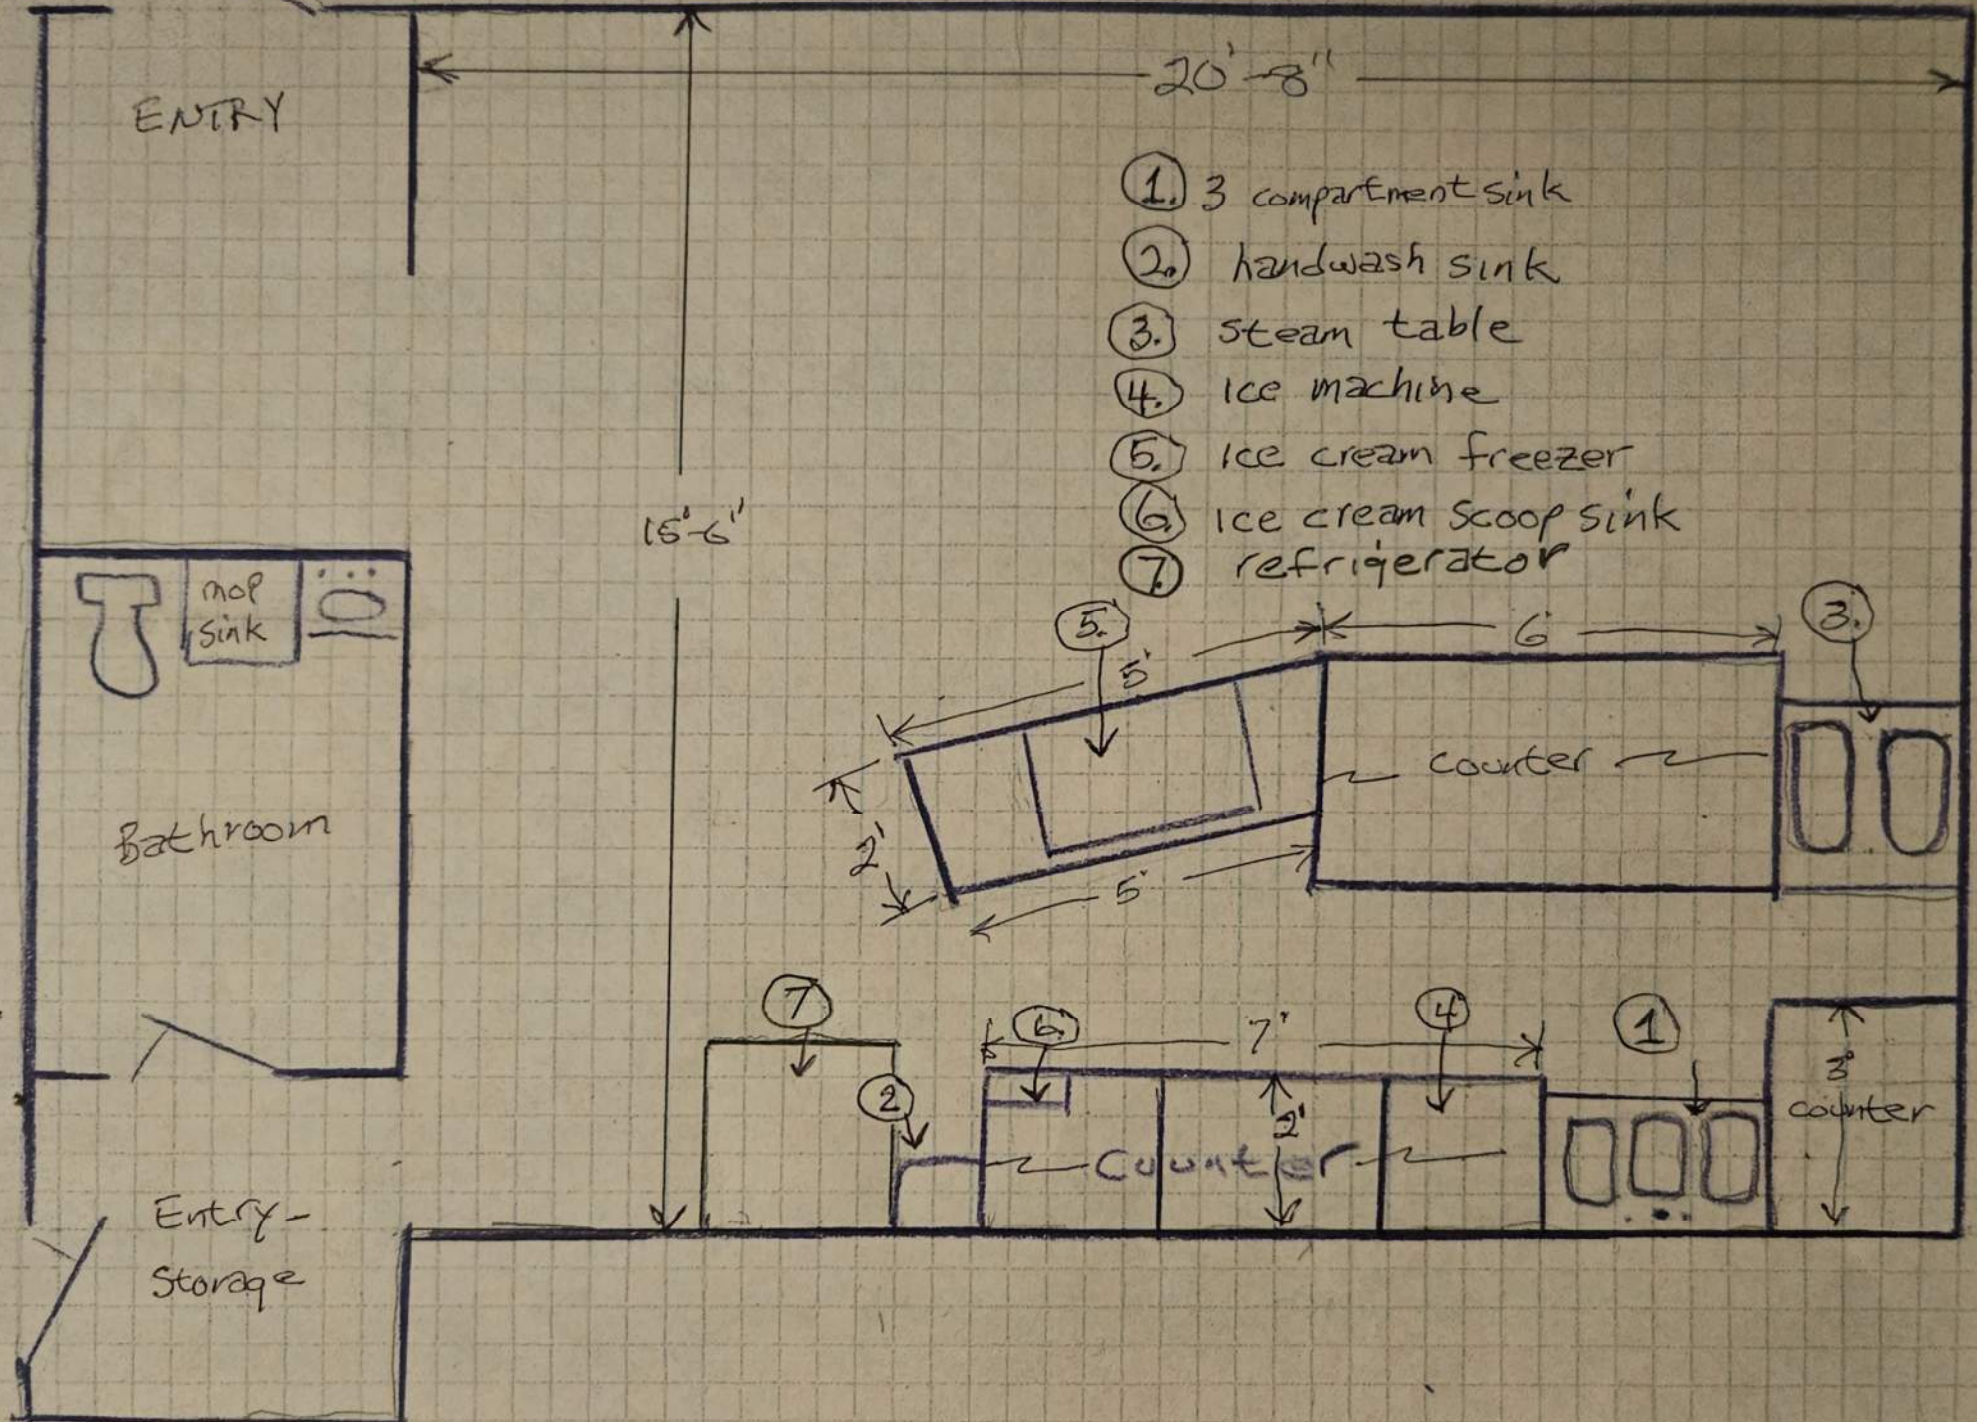 ENTRY
20'-8"
1. 3 compartment sink
2. handwash sink
3. steam table
4. Ice machine
5. Ice cream freezer
6. Ice cream scoop sink
7. refrigerator
15'-6"
mop
sink
5.
5'
6'
3.
counter
2'
5'
Bathroom
7
6.
7'
4
1
2
2'
counter
3'
counter
Entry-
Storage